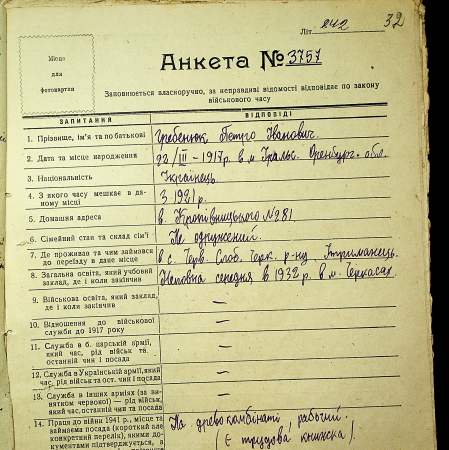 Літ 242
32
Місце
для
фотокартки
Анкета № 3757
Заповнюється власноручно, за неправдиві відомості відповідає по закону
військового часу
ЗАПИТАННЯ
ВІДПОВІДІ
1. Прізвище, ім'я та по батькові Гребенюк Петро Іванович.
2. Дата та місце народження 22/III – 1917 р. в м Уральс. Оренбург. обл.
3. Національність Українець
4. З якого часу мешкає в даному місці З 1921 р.
5. Домашня адреса в. Кропівницького № 281
6. Сімейний стан та склад сім'ї Не одружений.
7. Де проживав та чим займався
до переїзду в дане місце в с. Черв. Слоб. Черк. р-ну,
8. Загальна освіта, який учбовий
заклад, де і коли закінчив Неповна середня в 1932 р. в м. Черкасах.
9. Військова освіта, який заклад,
де і коли закінчив —
10. Відношення до військової
служби до 1917 року —
11. Служба в б. царській армії,
який час, рід військ та
останній чин і посада —
12. Служба в Українській армії, який
час, рід військ та ост. чин і посада —
13. Служба в інших арміях (за винятком
червоної) — рід військ,
який час, останній чин та посада —
14. Праця до війни 1941 р., місце та
займаєма посада (короткий але
конкретний перелік), якими документами
підтверджується, На древокомбінаті рабочий.
(Є трудова книжка).